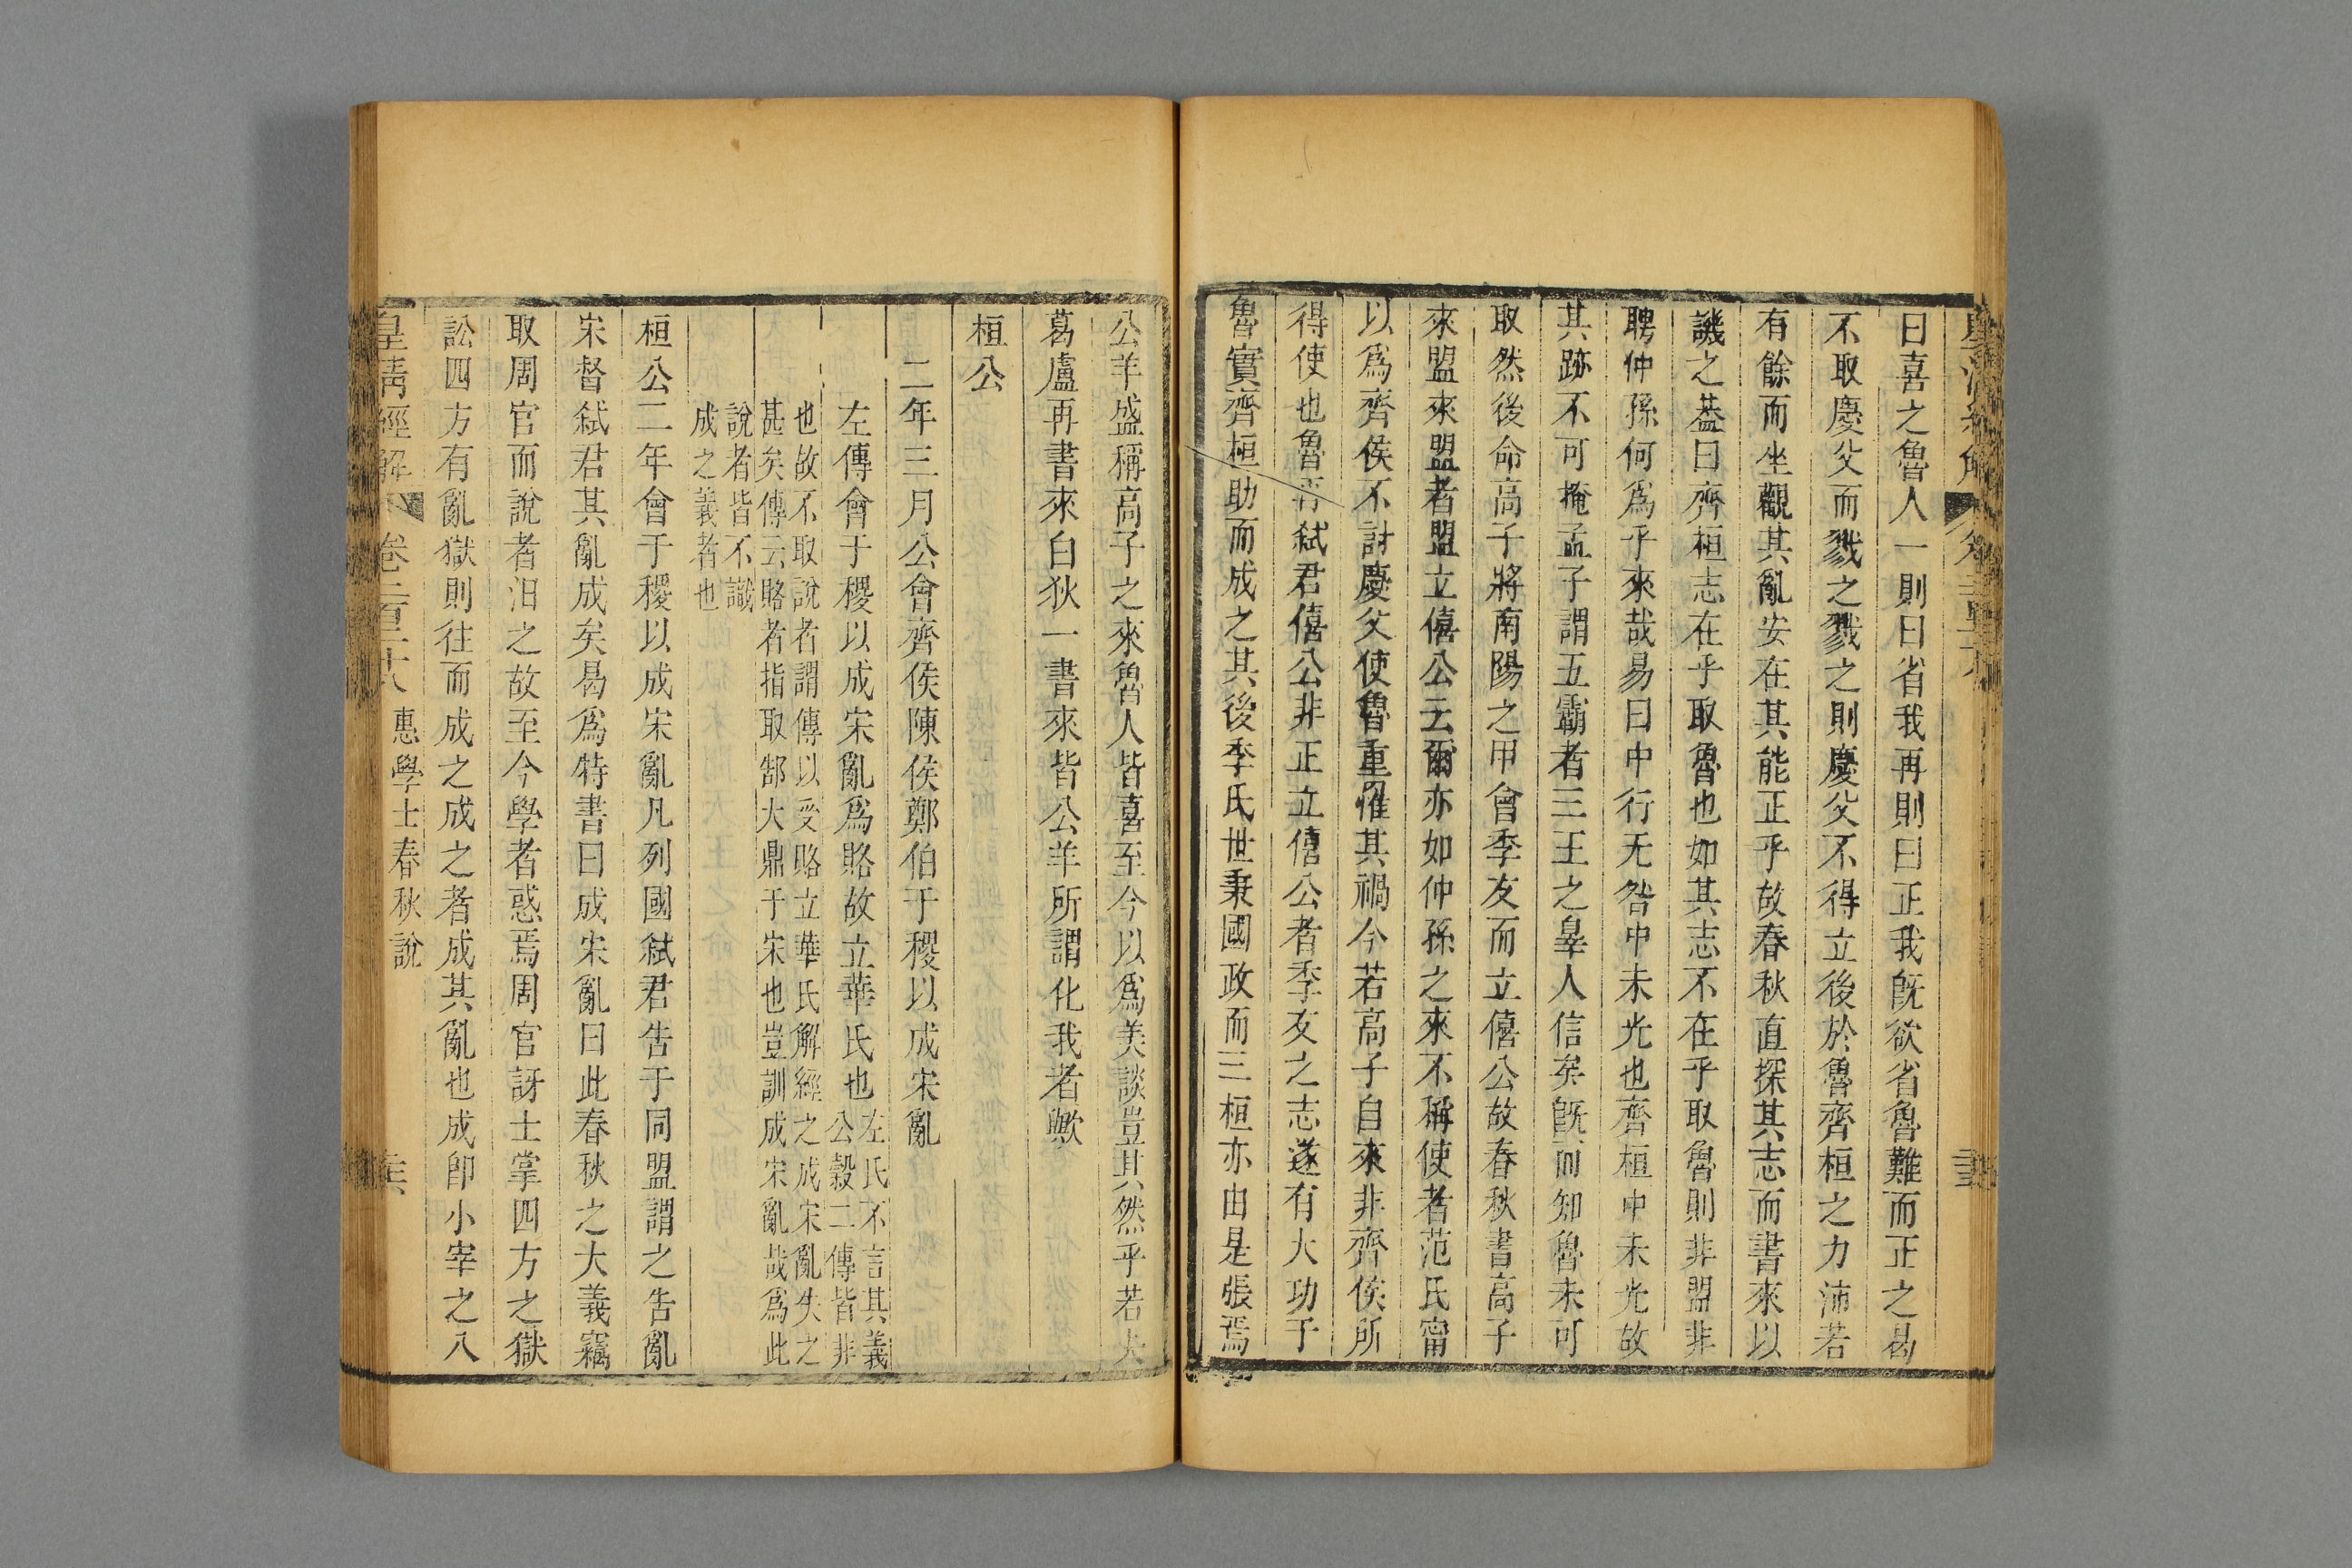 曰喜之魯人一則曰省我再則曰正我旣欲省魯難而正之曷
不取慶父而戮之戮之則慶父不得立後於魯齊桓之力沛若
有餘而坐觀其亂安在其能正乎故春秋直探其志而書來以
譏之葢曰齊桓志在乎取魯也如其志不在乎取魯則非盟非
聘仲孫何爲乎來哉易曰中行无咎中未光也齊桓中未光故
其跡不可掩孟子謂五霸者三王之辠人信矣旣而知魯未可
取然後命高子將南陽之甲會季友而立僖公故春秋書高子
來盟來盟者盟立僖公云爾亦如仲孫之來不稱使者范氏甯
以爲齊侯不討慶父使魯重罹其禍今若高子自來非齊侯所
得使也魯弑君僖公非正立僖公者季友之志遂有大功于
魯實齊桓助而成之其後季氏世秉國政而三桓亦由是張焉
公羊盛稱高子之來魯人皆喜至今以爲美談豈其然乎若大
葛盧再書來白狄一書來皆公羊所謂化我者歟
桓公
二年三月公會齊侯陳侯鄭伯于稷以成宋亂
左傳會于稷以成宋亂爲賂故立華氏也
左氏不言其義
公穀二傳皆非
也故不取說者謂傳以受賂立華氏解經之成宋亂失之
甚矣傳云賂者指取郜大鼎于宋也豈訓成宋亂哉爲此
說者皆不識
成之義者也
桓公二年會于稷以成宋亂凡列國弑君告于同盟謂之告亂
宋督弑君其亂成矣曷爲特書曰成宋亂曰此春秋之大義竊
取周官而說者汨之故至今學者惑焉周官訝士掌四方之獄
訟四方有亂獄則往而成之成之者成其亂也成卽小宰之八
皇清經解 卷二百二十八 惠學士春秋說